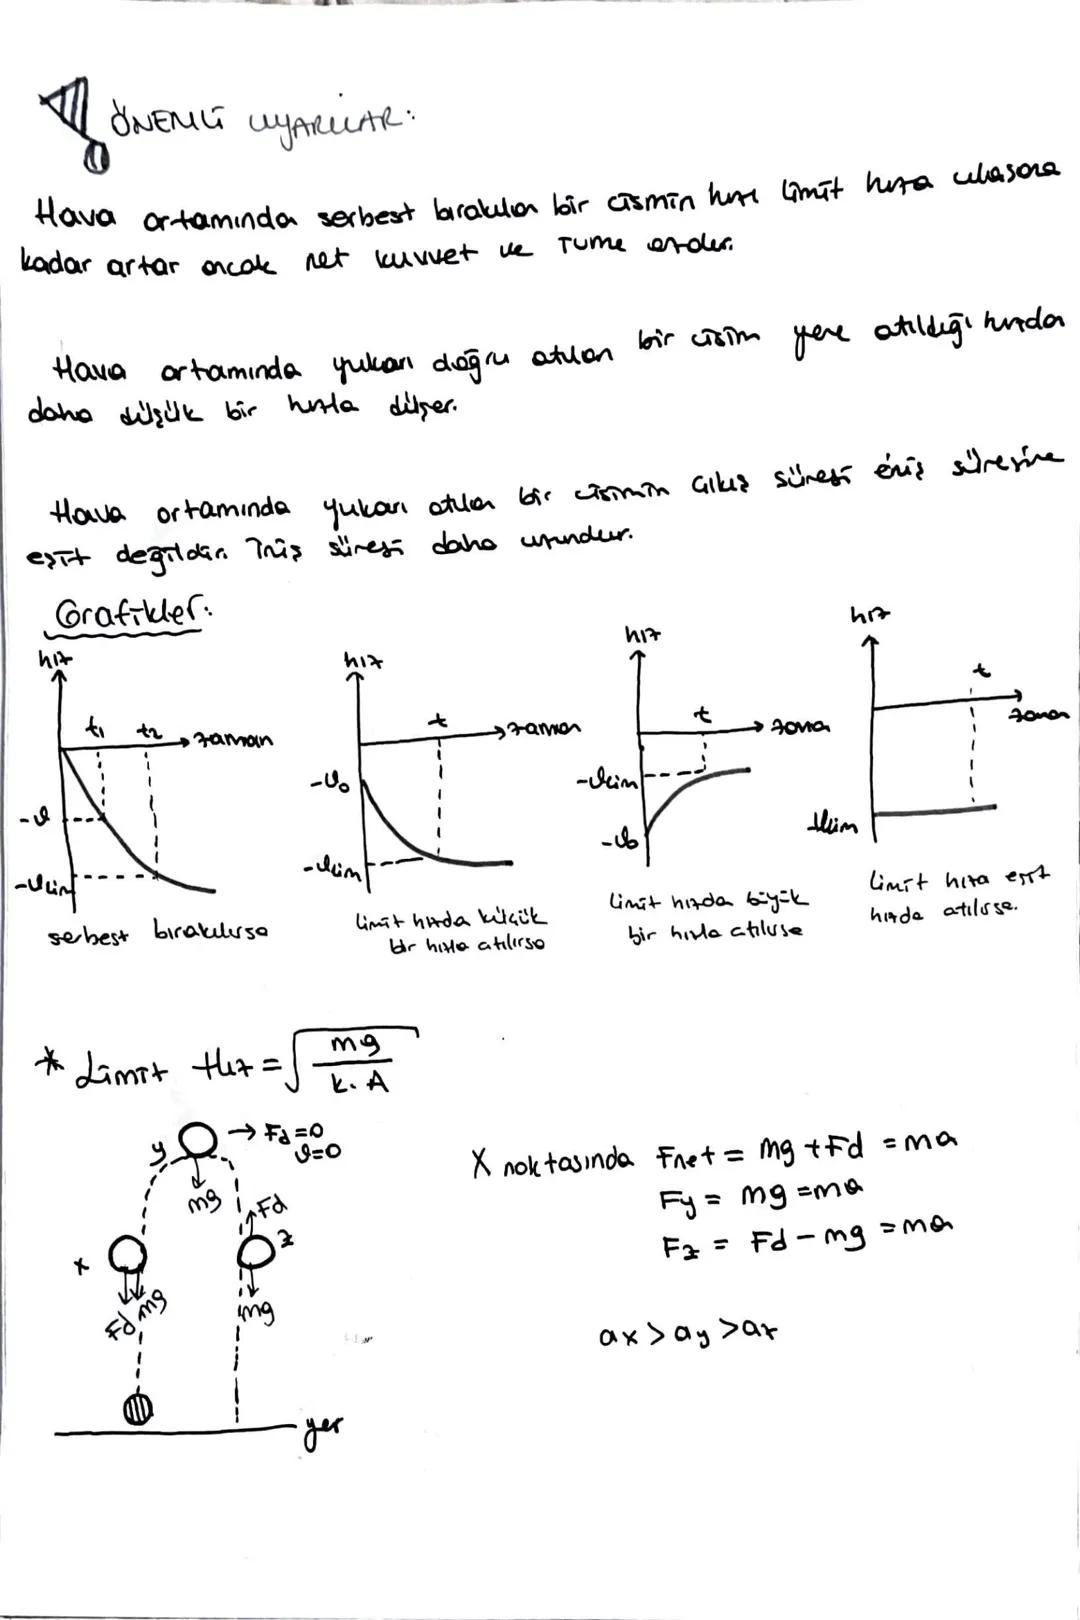 ÖNEMLİ UYARILAR:
Hava ortamında serbest bırakılan bir cismin hızı limit hıza ulaşana
kadar artar ancak net kuvvet ve ivme
Hava ortamında yukarı doğru atılan bir cisim yere atıldığı hızdan
daha düşük bir hızla düşer.
Hava ortamında yukarı atılan bir cismin çıkış süresi iniş süresine
eşit değildir. İniş süresi daha uzundur.
Grafikler:
hız
t1 t2 zaman
-ϑ
-ϑlim
serbest bırakılırsa
hız
t zaman
-ϑ0
-ϑlim
limit hızdan küçük
bir hızla atılırsa
hız
t zaman
-ϑlim
-ϑ0
limit hızdan büyük
bir hızla atılırsa
hız
t
zaman
-ϑlim
limit hıza eşit
hızda atılırsa.
* Limit Hız = √(mg / k. A)
y → Fd = 0
ϑ = 0
mg
Fd
x
z
Fd mg
mg
yer
X noktasında Fnet = mg + Fd = ma
Fy = mg = ma
Fz = Fd - mg = ma
ax > ay > az